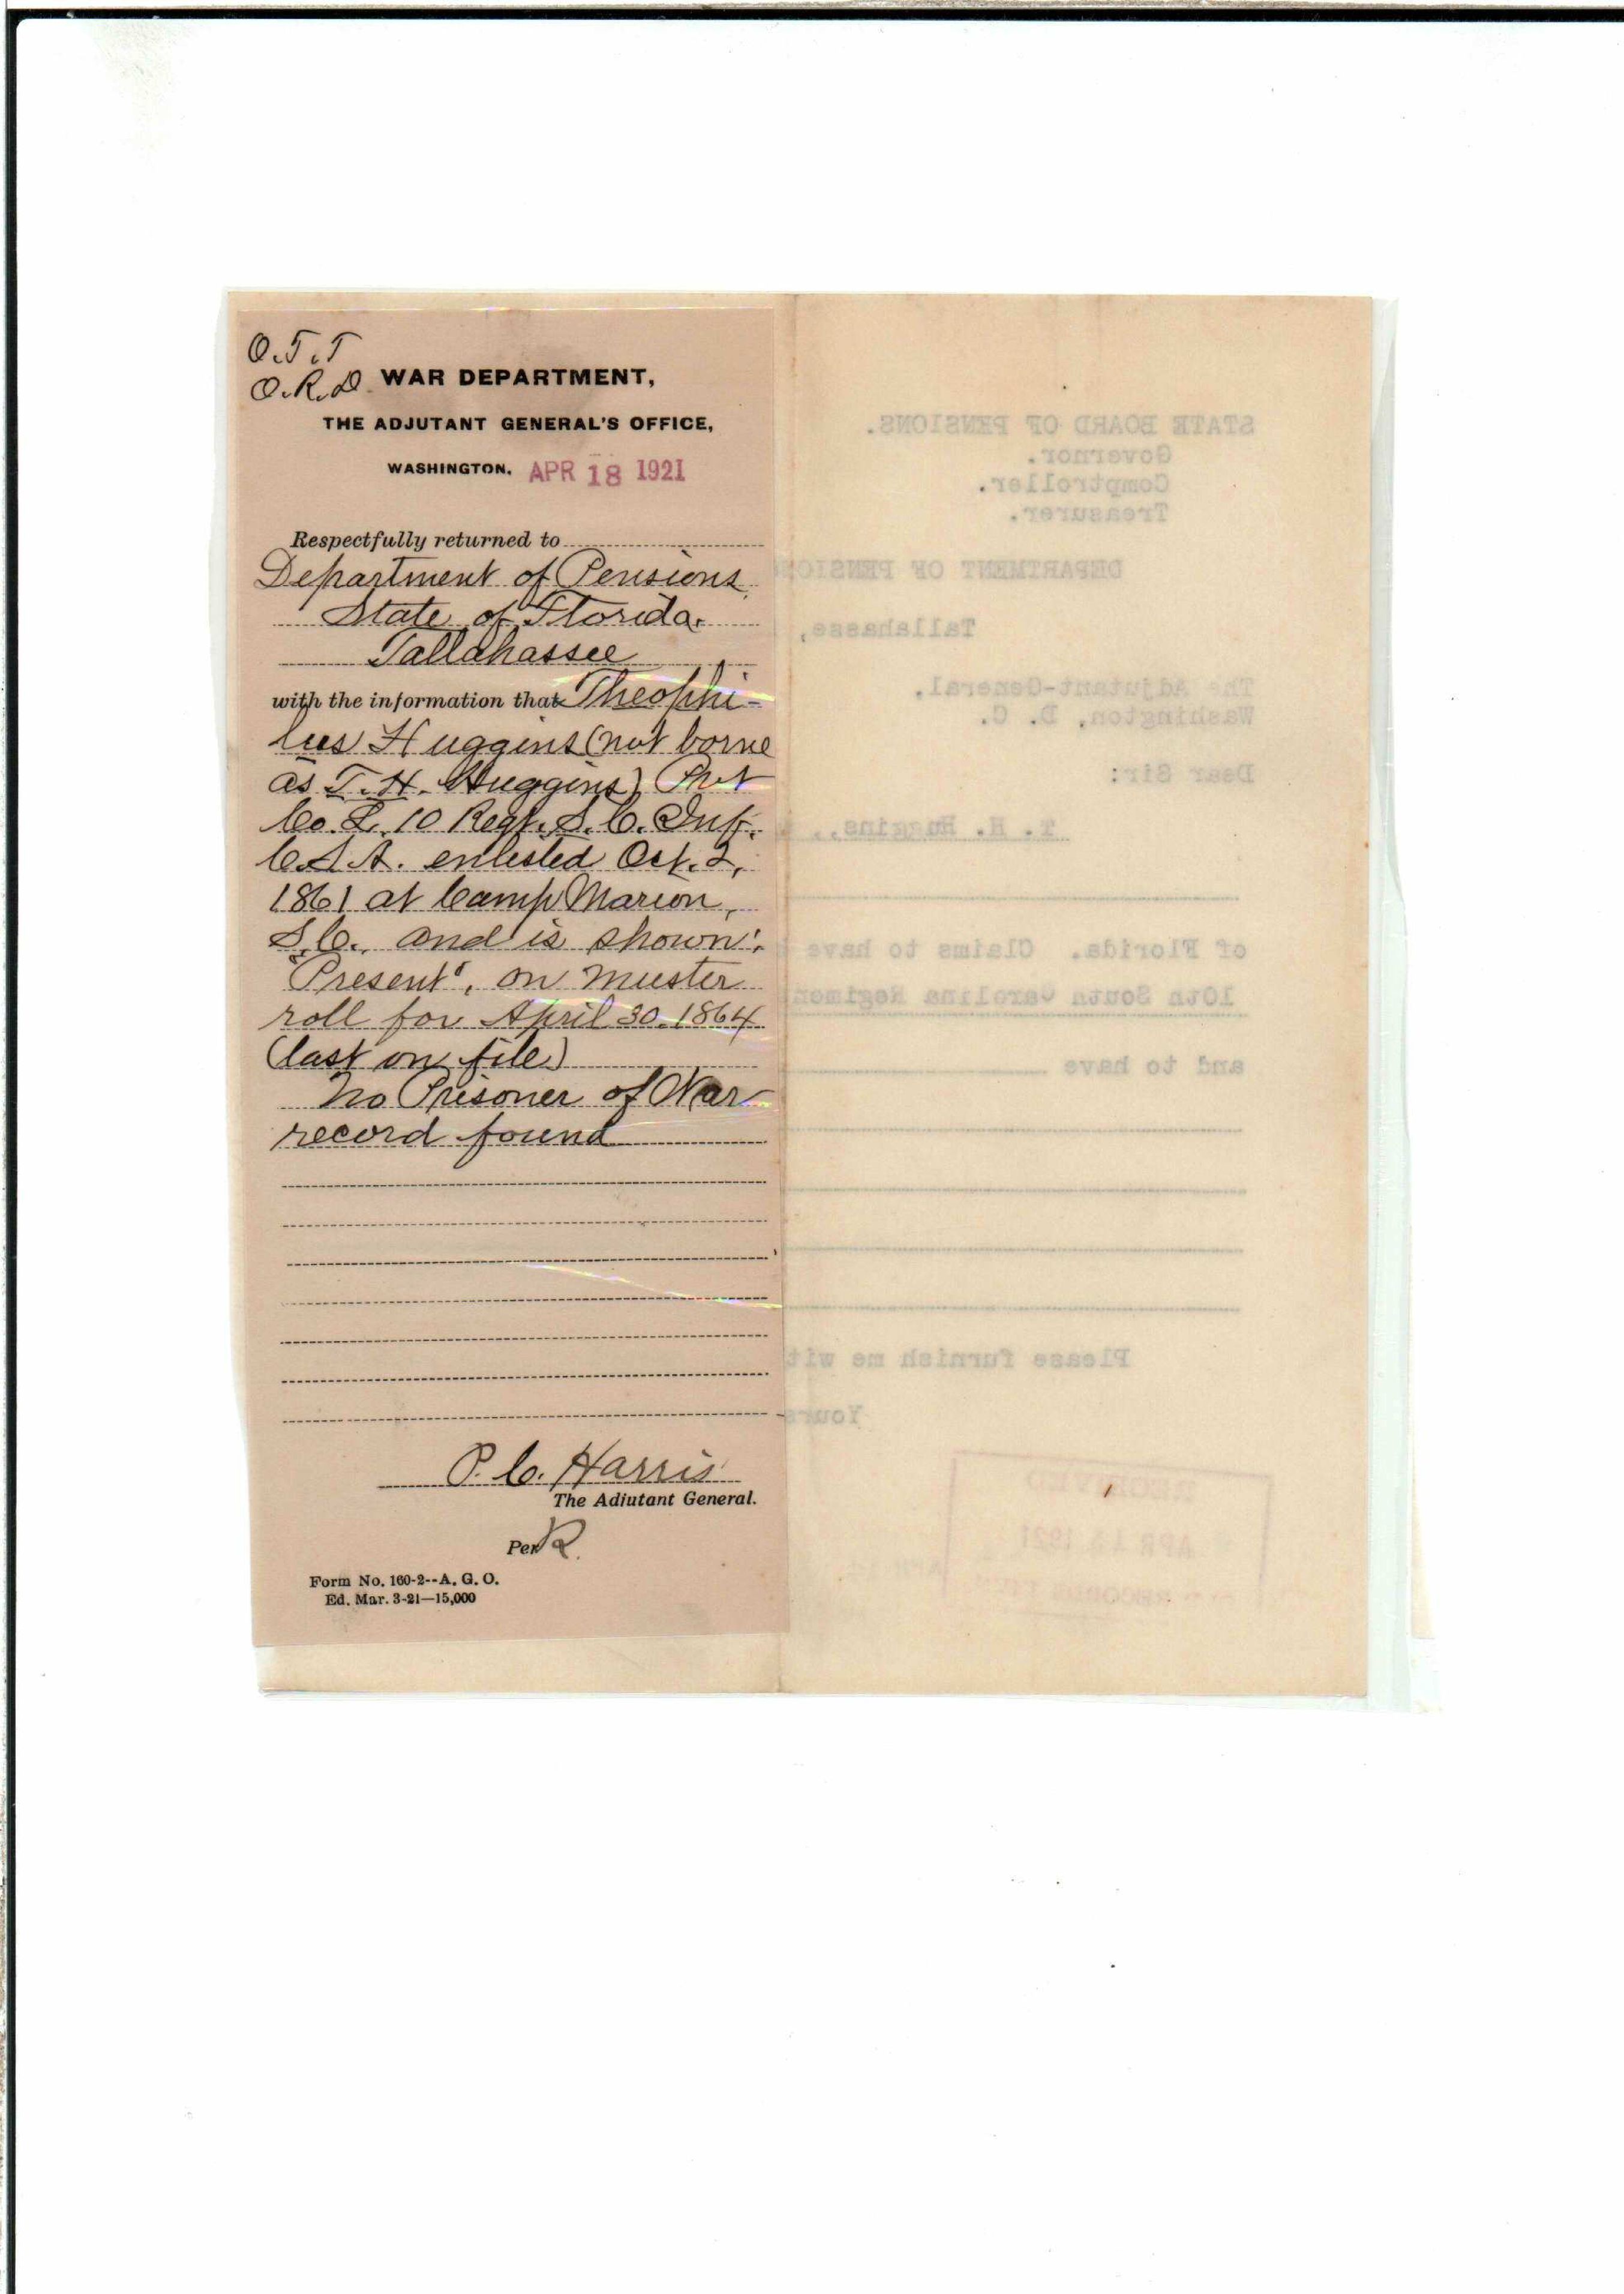 O.T.T
O.R.D. WAR DEPARTMENT,
THE ADJUTANT GENERAL'S OFFICE,
WASHINGTON. APR 18 1921
Respectfully returned to
Department of Pensions
State of Florida.
Tallahassee
with the information that Theophi-
lus Huggins (not borne
as T. H. Huggins) Pvt
Co. L. 10 Regt. S. C. Inf.
C.S.A. enlisted Oct. 2,
1861 at Camp Marion,
S.C., and is shown:
"Present", on muster
roll for April 30. 1864
(last on file)
No Prisoner of War
record found
P. C. Harris
The Adjutant General.
Per R.
Form No. 160-2--A. G. O.
Ed. Mar. 3-21—15,000
STATE BOARD OF PENSIONS.
Governor.
Comptroller.
Treasurer.
DEPARTMENT OF PENSIO
Tallahassee,
The Adjutant-General,
Washington, D. C.
Dear Sir:
T. H. Huggins,
of Florida. Claims to have
10th South Carolina Regimen
and to have
Please furnish me wit
Yours
RECEIVED
APR 1 1921